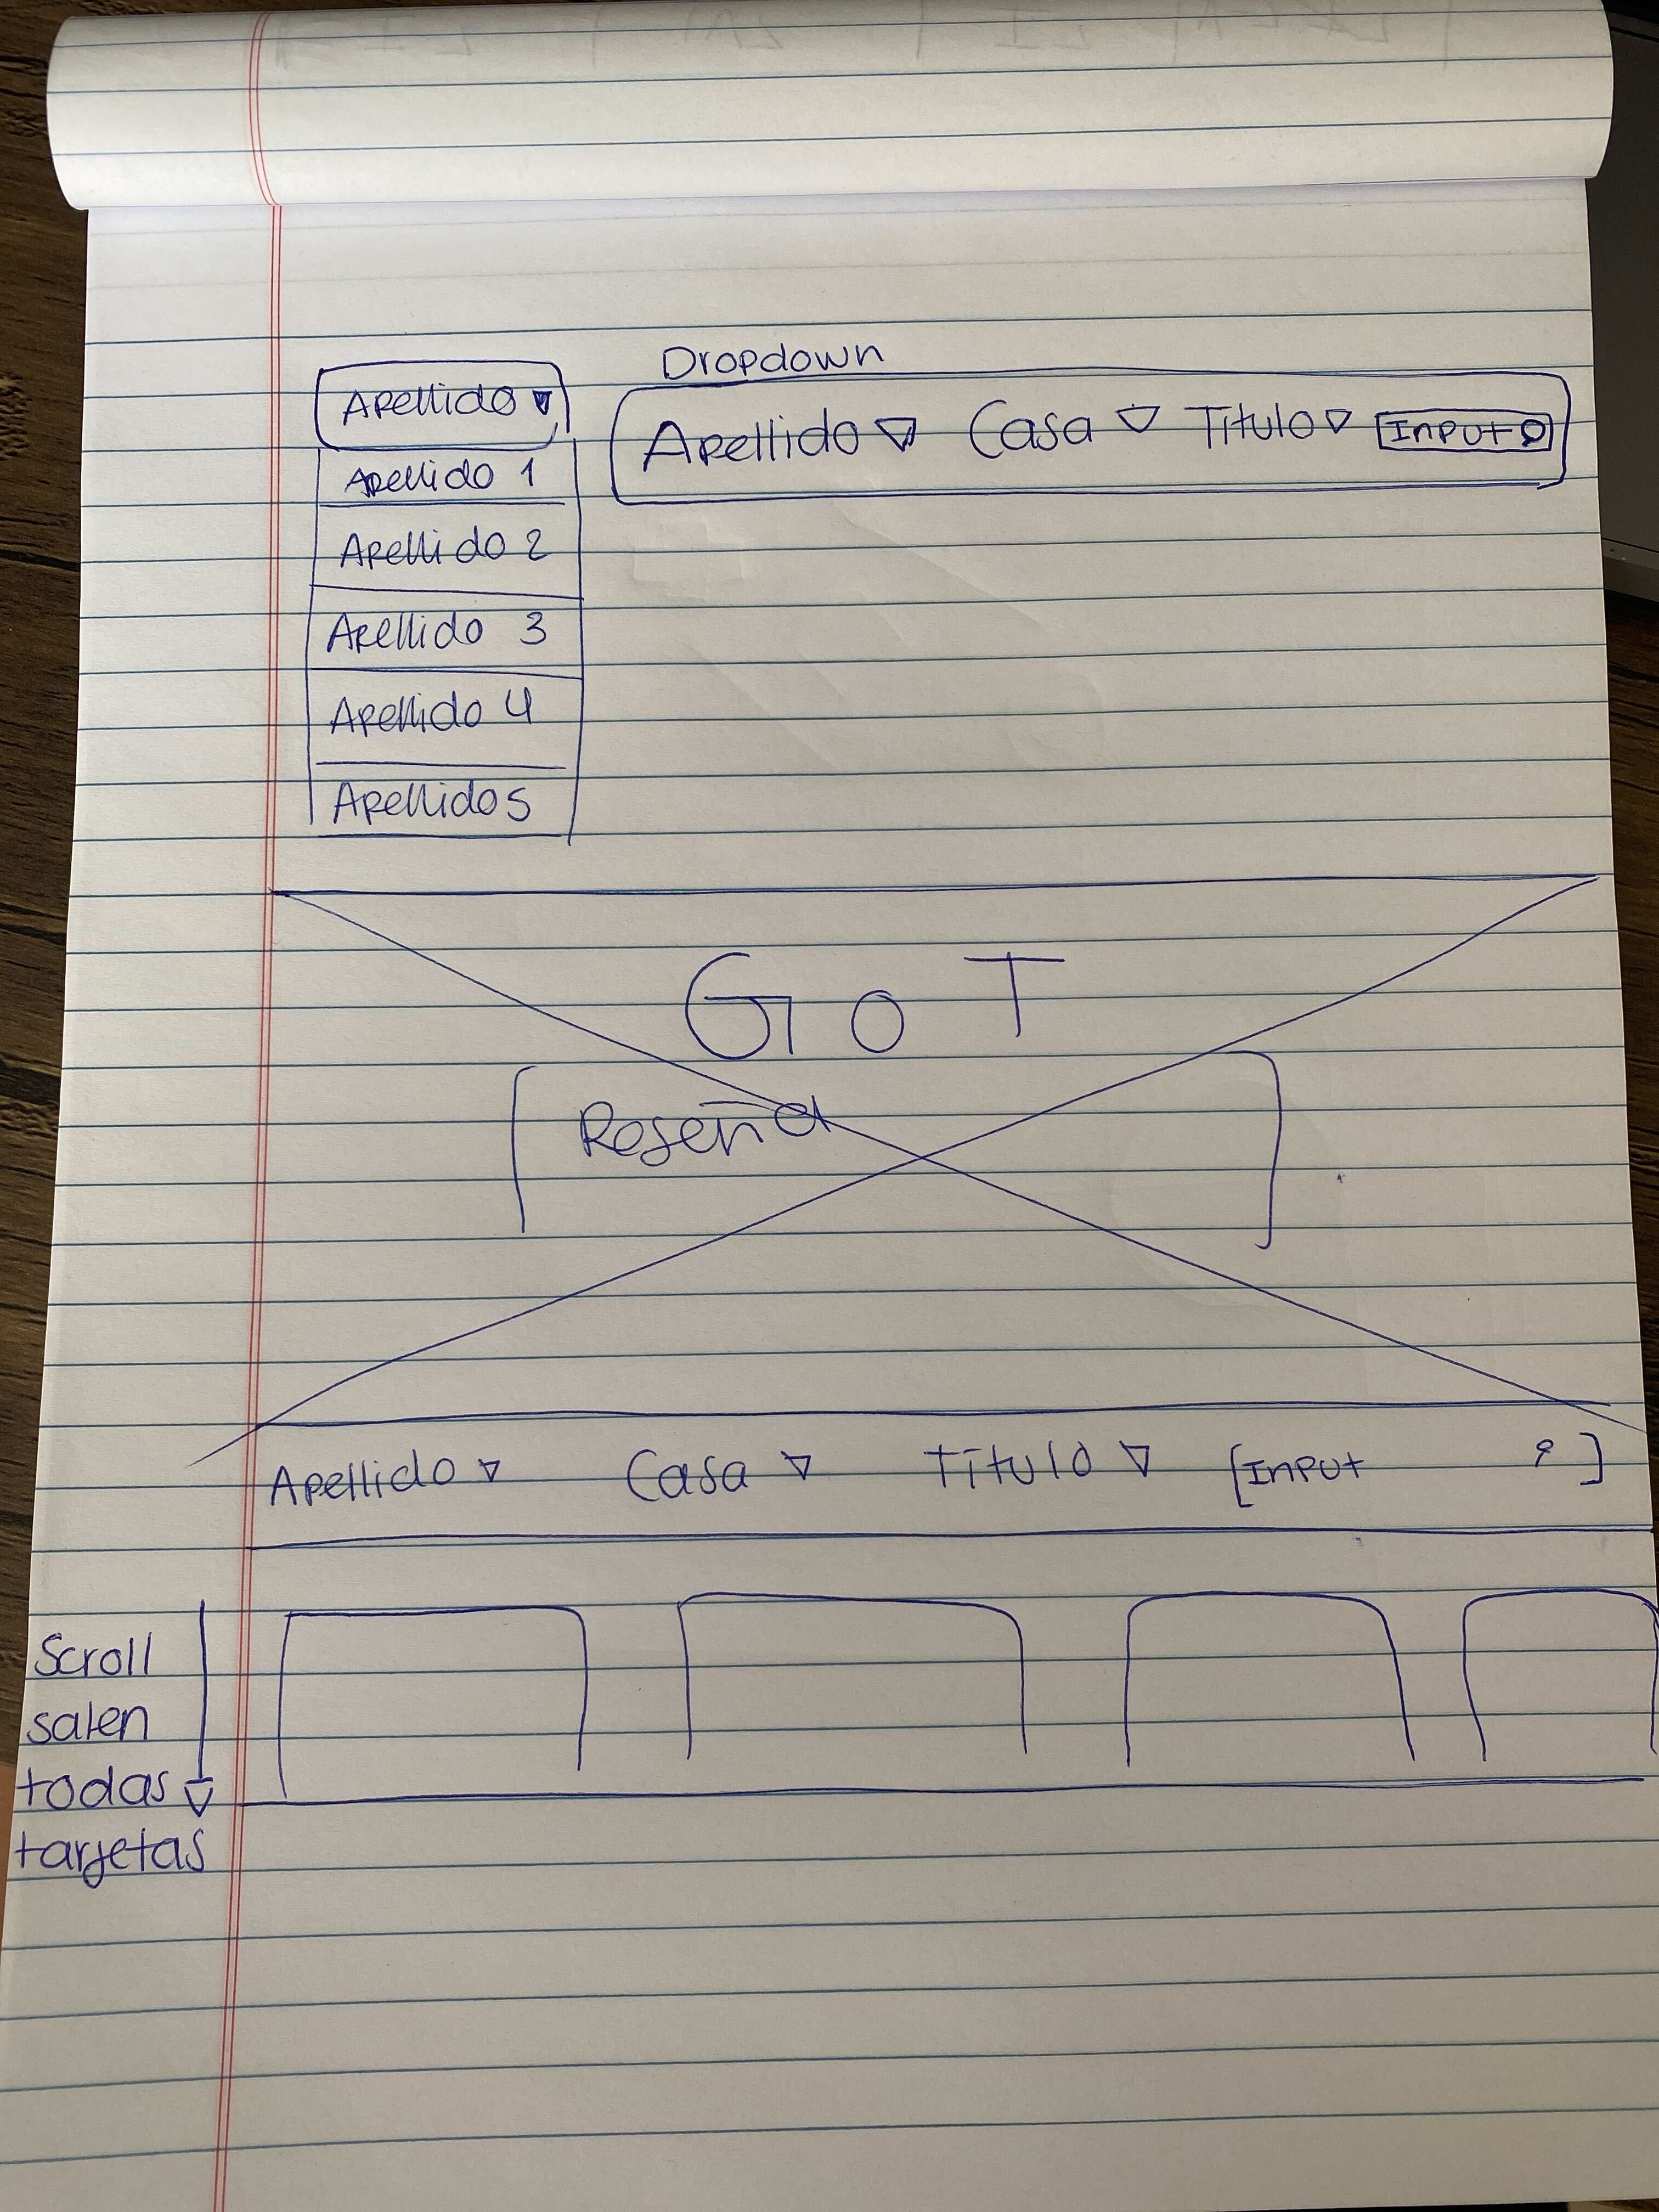 Dropdown
Apellido
Apellido 1
Apellido 2
Apellido 3
Apellido 4
Apellido 5
Apellido Casa Título Input
GoT
Reseña
Apellido Casa Título [Input ]
Scroll
salen
todas
tarjetas